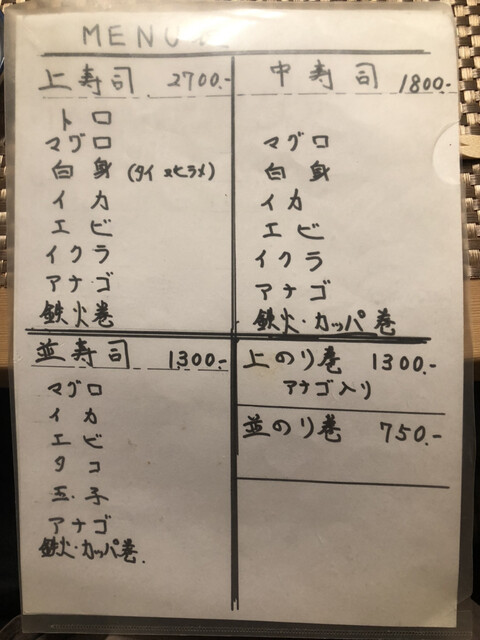 MENU
上寿司 2700.-
トロ
マグロ
白身 (タイ又ヒラメ)
イカ
エビ
イクラ
アナゴ
鉄火巻
中寿司 1800.-
マグロ
白身
イカ
エビ
イクラ
アナゴ
鉄火・カッパ巻
並寿司 1300.-
マグロ
イカ
エビ
タコ
玉子
アナゴ
鉄火・カッパ巻.
上のり巻 1300.-
アナゴ入り
並のり巻 750.-